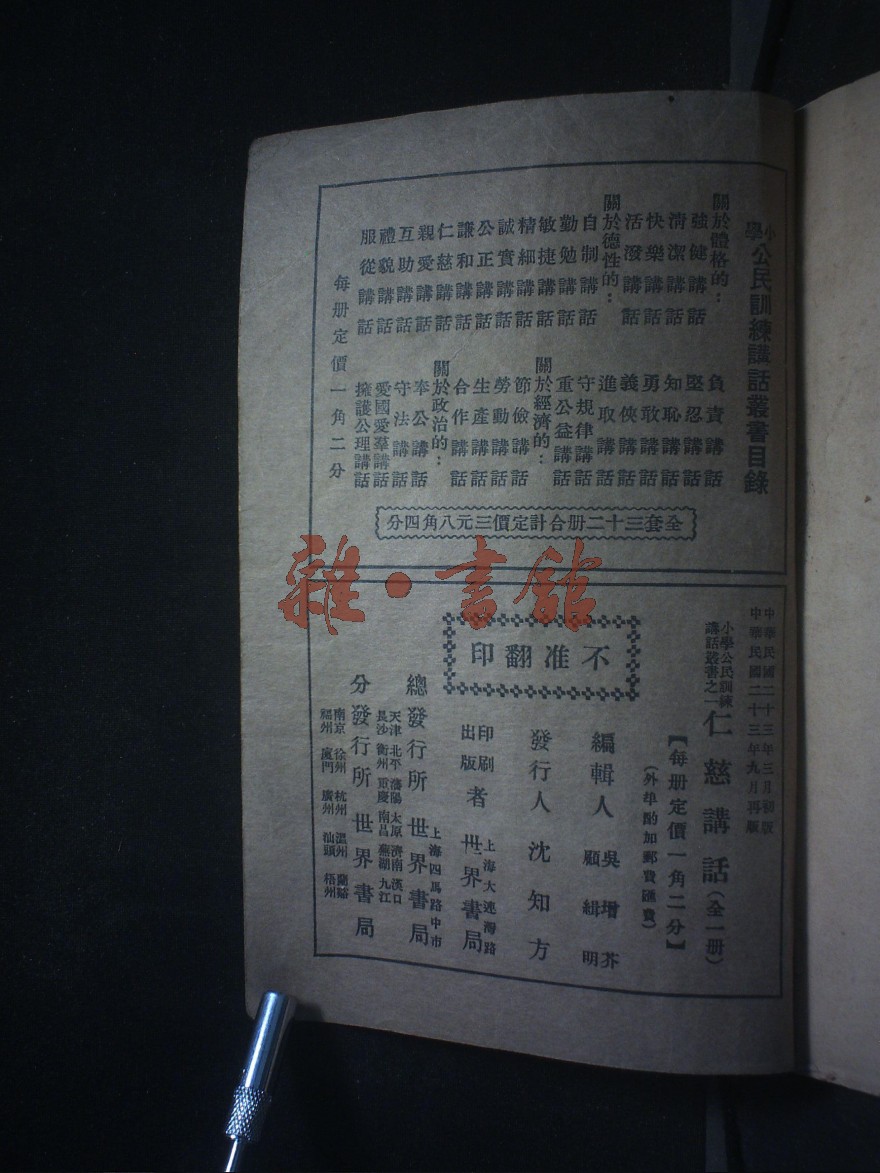 小學公民訓練講話叢書目錄
關於體格的：
強健講話
清潔講話
快樂講話
活潑講話
關於德性的：
自制講話
勤勉講話
敏捷講話
精細講話
誠實講話
公正講話
謙和講話
仁慈講話
親愛講話
互助講話
禮貌講話
服從講話
負責講話
堅忍講話
知恥講話
勇敢講話
義俠講話
進取講話
守規律講話
重公益講話
關於經濟的：
節儉講話
勞動講話
生產講話
合作講話
關於政治的：
奉公講話
守法講話
愛國愛羣講話
擁護公理講話
每册定價一角二分
全套三十二册合計定價三元八角四分
雜·書館
中華民國二十三年三月初版
中華民國二十三年九月再版
小學公民訓練講話叢書之一 仁慈講話（全一册）
【每册定價一角二分】
（外埠酌加郵費匯費）
編輯人 吳增芥 顧緝明
發行人 沈知方
印刷出版者 上海大連灣路 世界書局
總發行所 上海四馬路中市 世界書局
分發行所 世界書局
天津 北平 瀋陽 太原 濟南 漢口
長沙 衡州 重慶 南昌 蕪湖 九江
南京 徐州 杭州 溫州 蘭谿
福州 廈門 廣州 汕頭 梧州
不准翻印